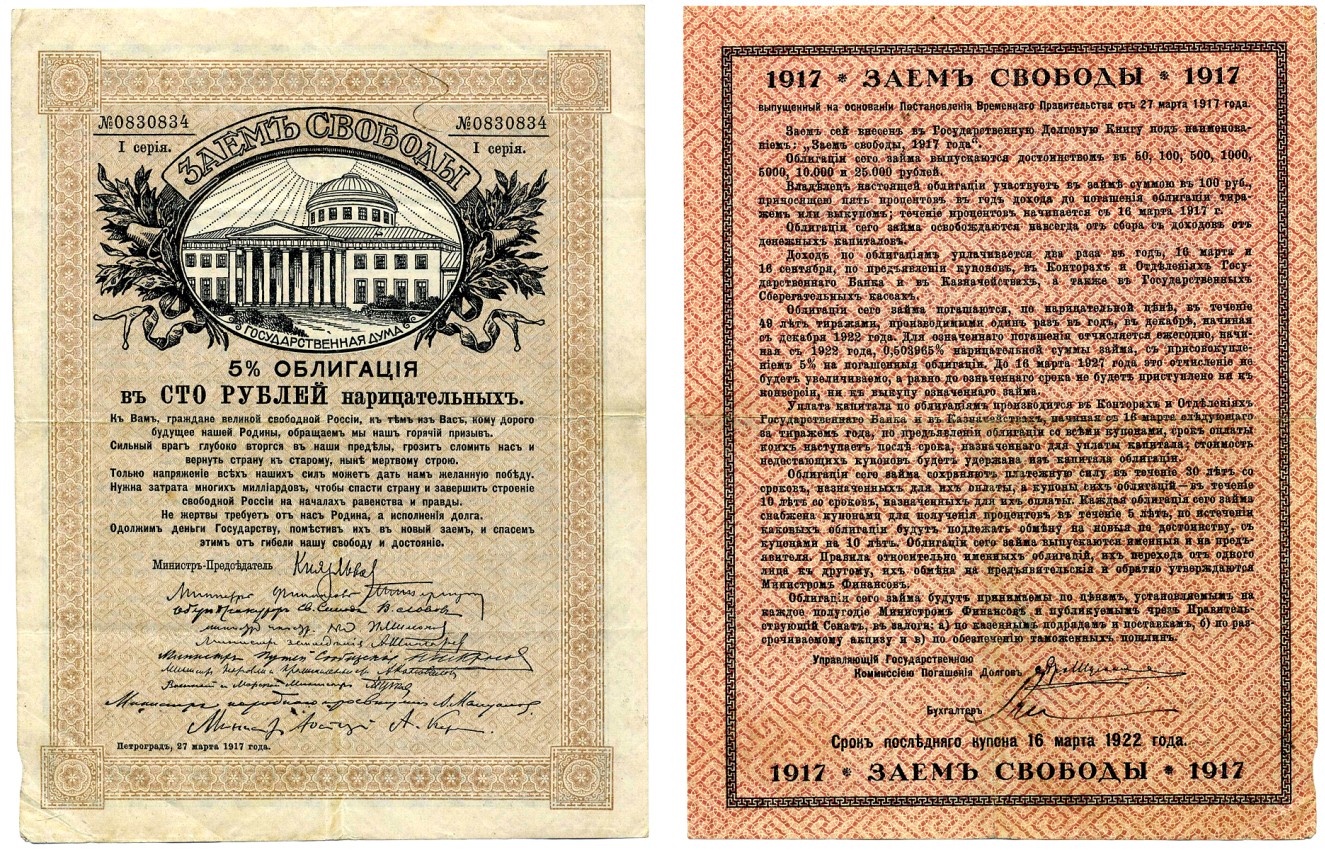 №0830834
№0830834
I серія.
I серія.
ЗАЕМЪ СВОБОДЫ
ГОСУДАРСТВЕННАЯ ДУМА
5% ОБЛИГАЦІЯ
въ СТО РУБЛЕЙ нарицательныхъ.
Къ Вамъ, граждане великой свободной Россіи, къ тѣмъ изъ Васъ, кому дорого
будущее нашей Родины, обращаемъ мы нашъ горячій призывъ.
Сильный врагъ глубоко вторгся въ наши предѣлы, грозитъ сломить насъ и
вернуть страну къ старому, нынѣ мертвому строю.
Только напряженіе всѣхъ нашихъ силъ можетъ дать намъ желанную побѣду.
Нужна затрата многихъ милліардовъ, чтобы спасти страну и завершить строеніе
свободной Россіи на началахъ равенства и правды.
Не жертвы требуетъ отъ насъ Родина, а исполненія долга.
Одолжимъ деньги Государству, помѣстивъ ихъ въ новый заемъ, и спасемъ
этимъ отъ гибели нашу свободу и достояніе.
Министръ-Предсѣдатель Князь Львов
Министръ Финансовъ
Оберъ Прокуроръ Св. Синода В. Львовъ
Министръ земледѣлія А. Шингарев
Министръ Путей Сообщенія Н. Некрасов
Военный и Морской Министръ Гучков
Министръ народного просвѣщенія А. Мануйлов
Министр Юстиціи А. Кер
Петроградъ, 27 марта 1917 года.
1917 * ЗАЕМЪ СВОБОДЫ * 1917
выпущенный на основаніи Постановленія Временнаго Правительства отъ 27 марта 1917 года.
Заемъ сей внесенъ въ Государственную Долговую Книгу подъ наименова-
ніемъ: „Заемъ свободы, 1917 года“.
Облигаціи сего займа выпускаются достоинствомъ въ 50, 100, 500, 1000,
5000, 10.000 и 25.000 рублей.
Владѣлецъ настоящей облигаціи участвуетъ въ займѣ суммою въ 100 руб.,
приносящею пять процентовъ въ годъ дохода до погашенія облигаціи тира-
жемъ или выкупомъ; теченіе процентовъ начинается съ 16 марта 1917 г.
Облигаціи сего займа освобождаются навсегда отъ сбора съ доходовъ отъ
денежныхъ капиталовъ.
Доходъ по облигаціямъ уплачивается два раза въ годъ, 16 марта и
16 сентября, по предъявленіи купоновъ, въ Конторахъ и Отдѣленіяхъ Госу-
дарственнаго Банка и въ Казначействахъ, а также въ Государственныхъ
Сберегательныхъ кассахъ.
Облигаціи сего займа погашаются, по нарицательной цѣнѣ, въ теченіе
49 лѣтъ тиражами, производимыми одинъ разъ въ годъ, въ декабрѣ, начиная
съ декабря 1922 года. Для означеннаго погашенія отчисляется ежегодно, начи-
ная съ 1922 года, 0,503965% нарицательной суммы займа, съ присовокупле-
ніемъ 5% на погашенныя облигаціи. До 16 марта 1927 года это отчисленіе не
будетъ увеличиваемо, а равно до означеннаго срока не будетъ приступлено ни къ
конверсіи, ни къ выкупу означеннаго займа.
Уплата капитала по облигаціямъ производится въ Конторахъ и Отдѣленіяхъ
Государственнаго Банка и въ Казначействахъ, начиная съ 16 марта слѣдующаго
за тиражемъ года, по предъявленіи облигаціи со всѣми купонами, срокъ оплаты
коихъ наступаетъ послѣ срока, назначеннаго для уплаты капитала; стоимость
недостающихъ купоновъ будетъ удержана изъ капитала облигаціи.
Облигаціи сего займа сохраняютъ платежную силу въ теченіе 30 лѣтъ со
сроковъ, назначенныхъ для ихъ оплаты, а купоны сихъ облигацій — въ теченіе
10 лѣтъ со сроковъ, назначенныхъ для ихъ оплаты. Каждая облигація сего займа
снабжена купонами для полученія процентовъ въ теченіе 5 лѣтъ, по истеченіи
каковыхъ облигаціи будутъ подлежать обмѣну на новыя по достоинству, съ
купонами на 10 лѣтъ. Облигаціи сего займа выпускаются именныя и на предъ-
явителя. Правила относительно именныхъ облигацій, ихъ перехода отъ одного
лица къ другому, ихъ обмѣна на предъявительскія и обратно утверждаются
Министромъ Финансовъ.
Облигаціи сего займа будутъ принимаемы по цѣнамъ, установляемымъ на
каждое полугодіе Министромъ Финансовъ и публикуемымъ чрезъ Правитель-
ствующій Сенатъ, въ залоги: а) по казеннымъ подрядамъ и поставкамъ, б) по раз-
срочиваемому акцизу и в) по обезпеченію таможенныхъ пошлинъ.
Управляющій Государственною
Комиссіею Погашенія Долговъ
Бухгалтеръ
Срокъ послѣдняго купона 16 марта 1922 года.
1917 * ЗАЕМЪ СВОБОДЫ * 1917